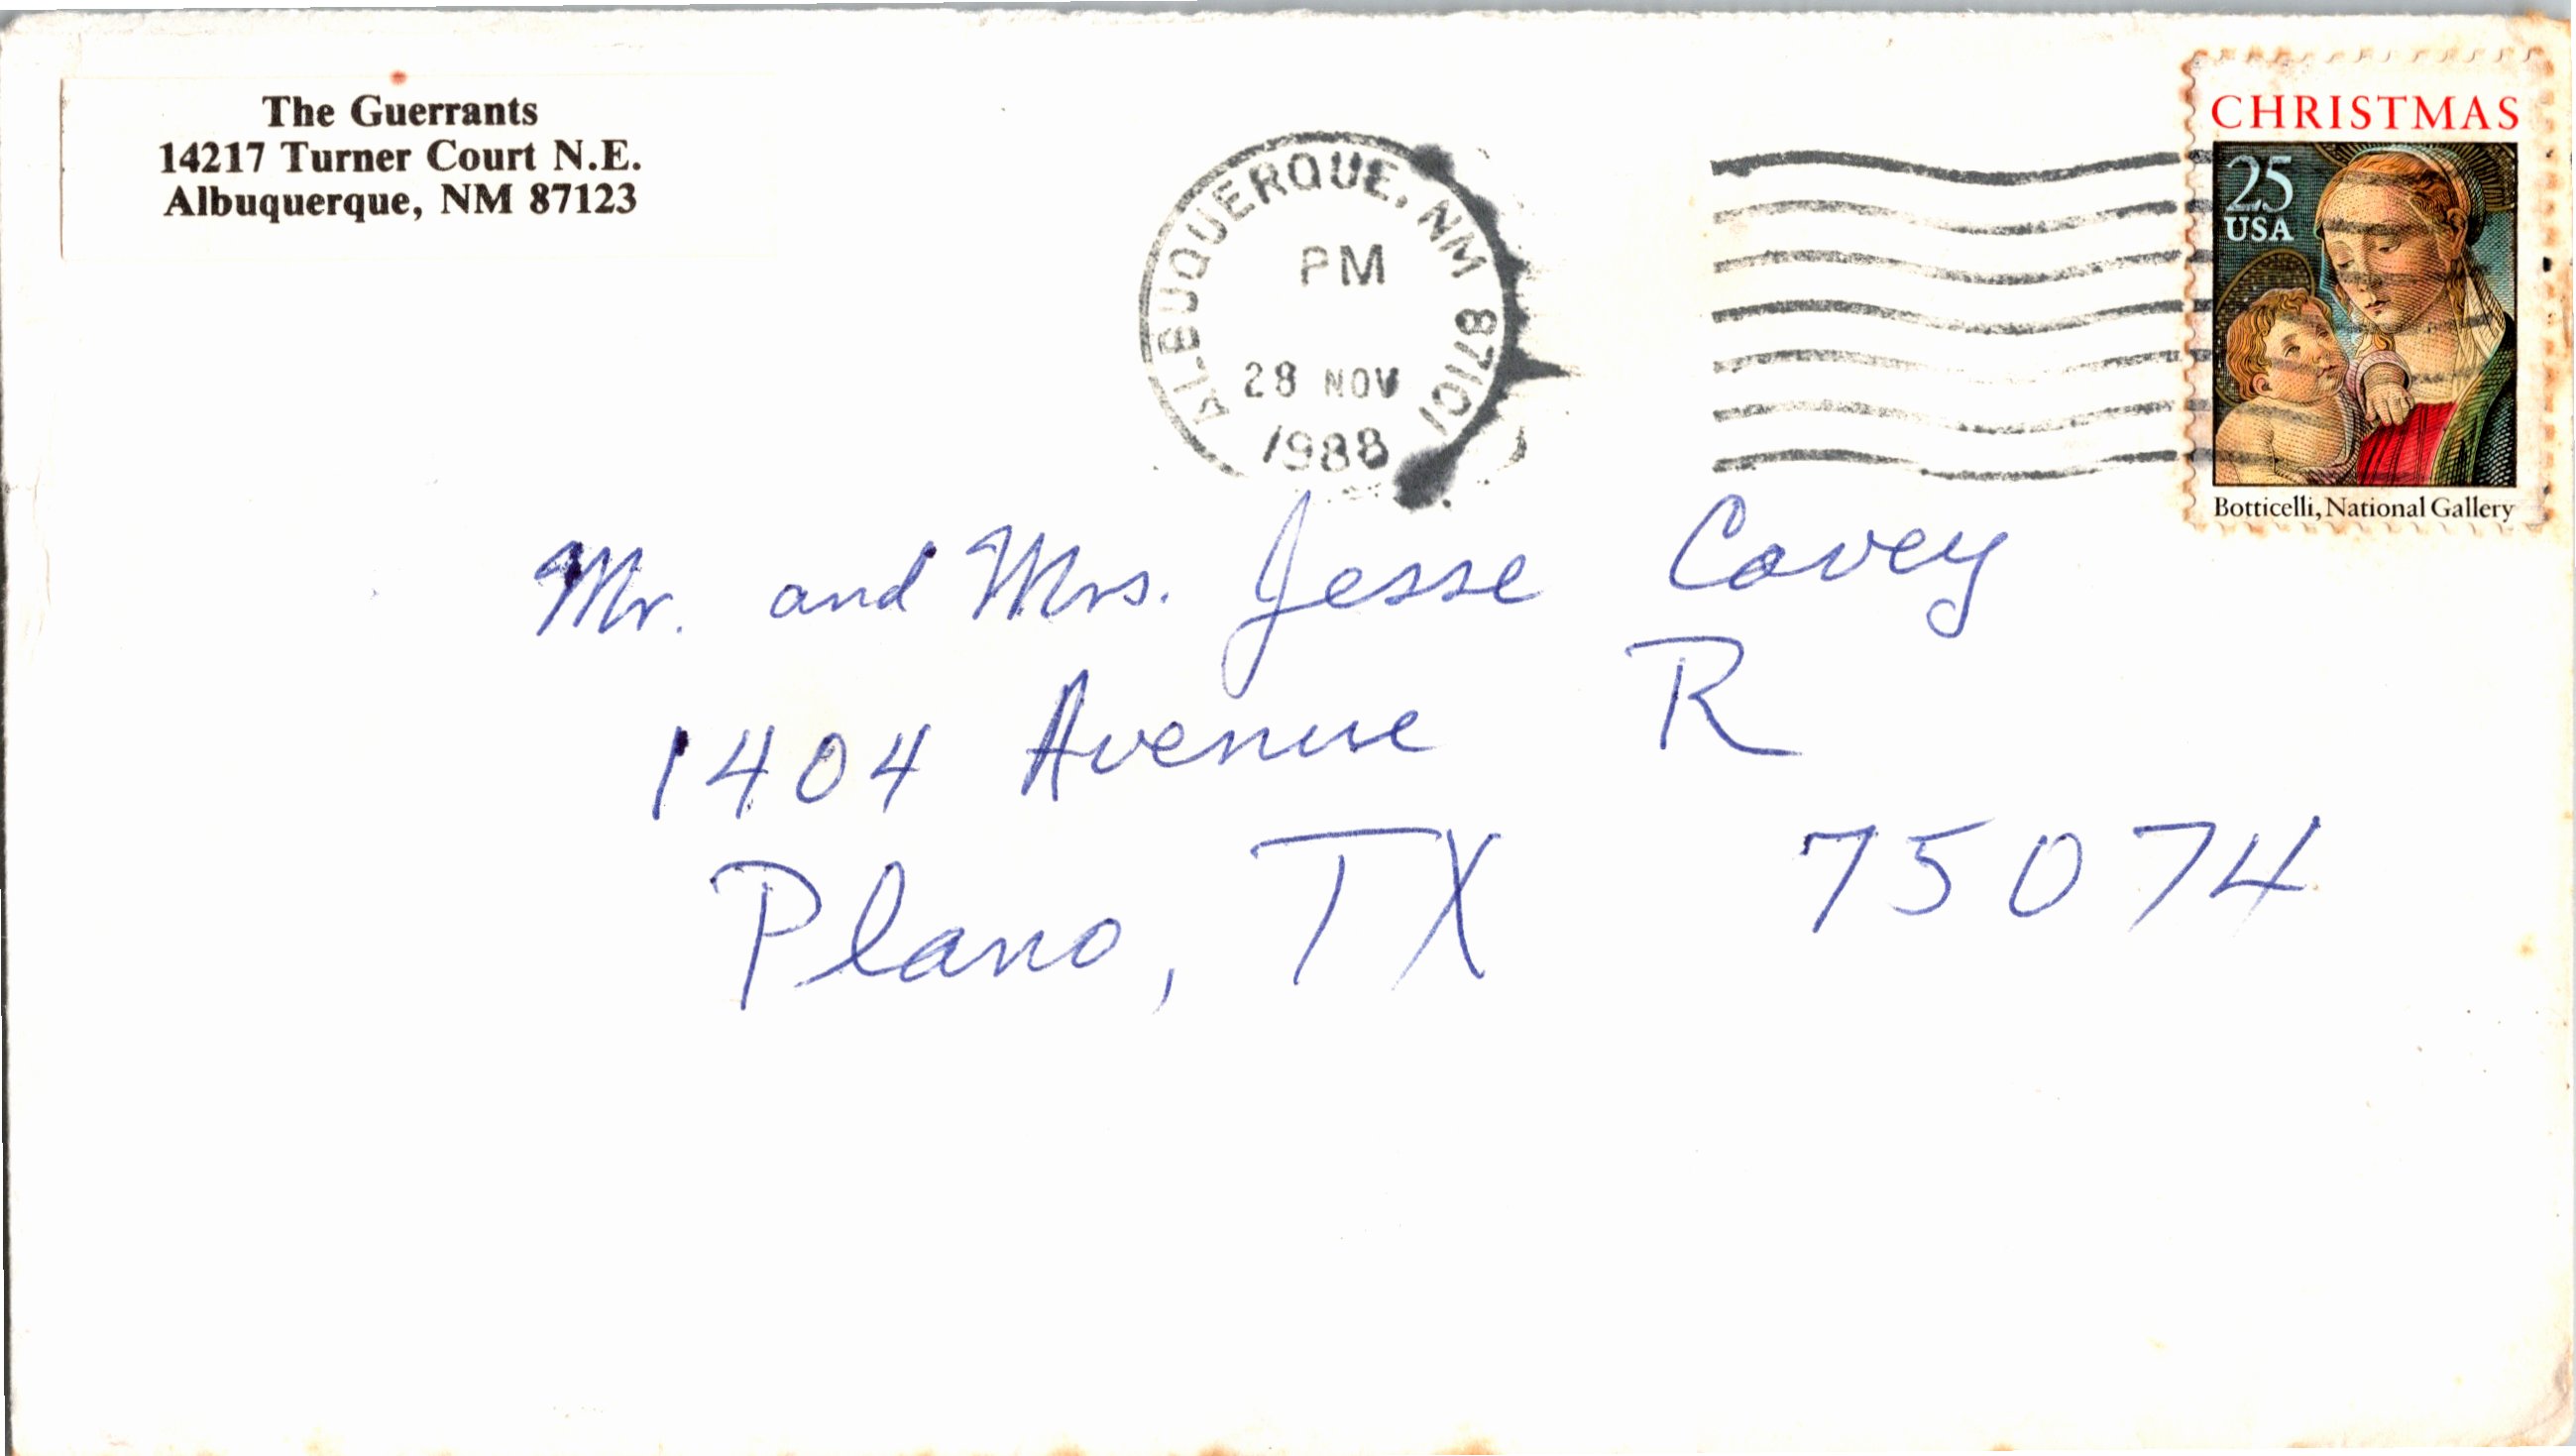 The Guerrants
14217 Turner Court N.E.
Albuquerque, NM 87123
ALBUQUERQUE, NM 87101
PM
28 NOV
1988
CHRISTMAS
25
USA
Botticelli, National Gallery
Mr. and Mrs. Jesse Covey
1404 Avenue R
Plano, TX 75074